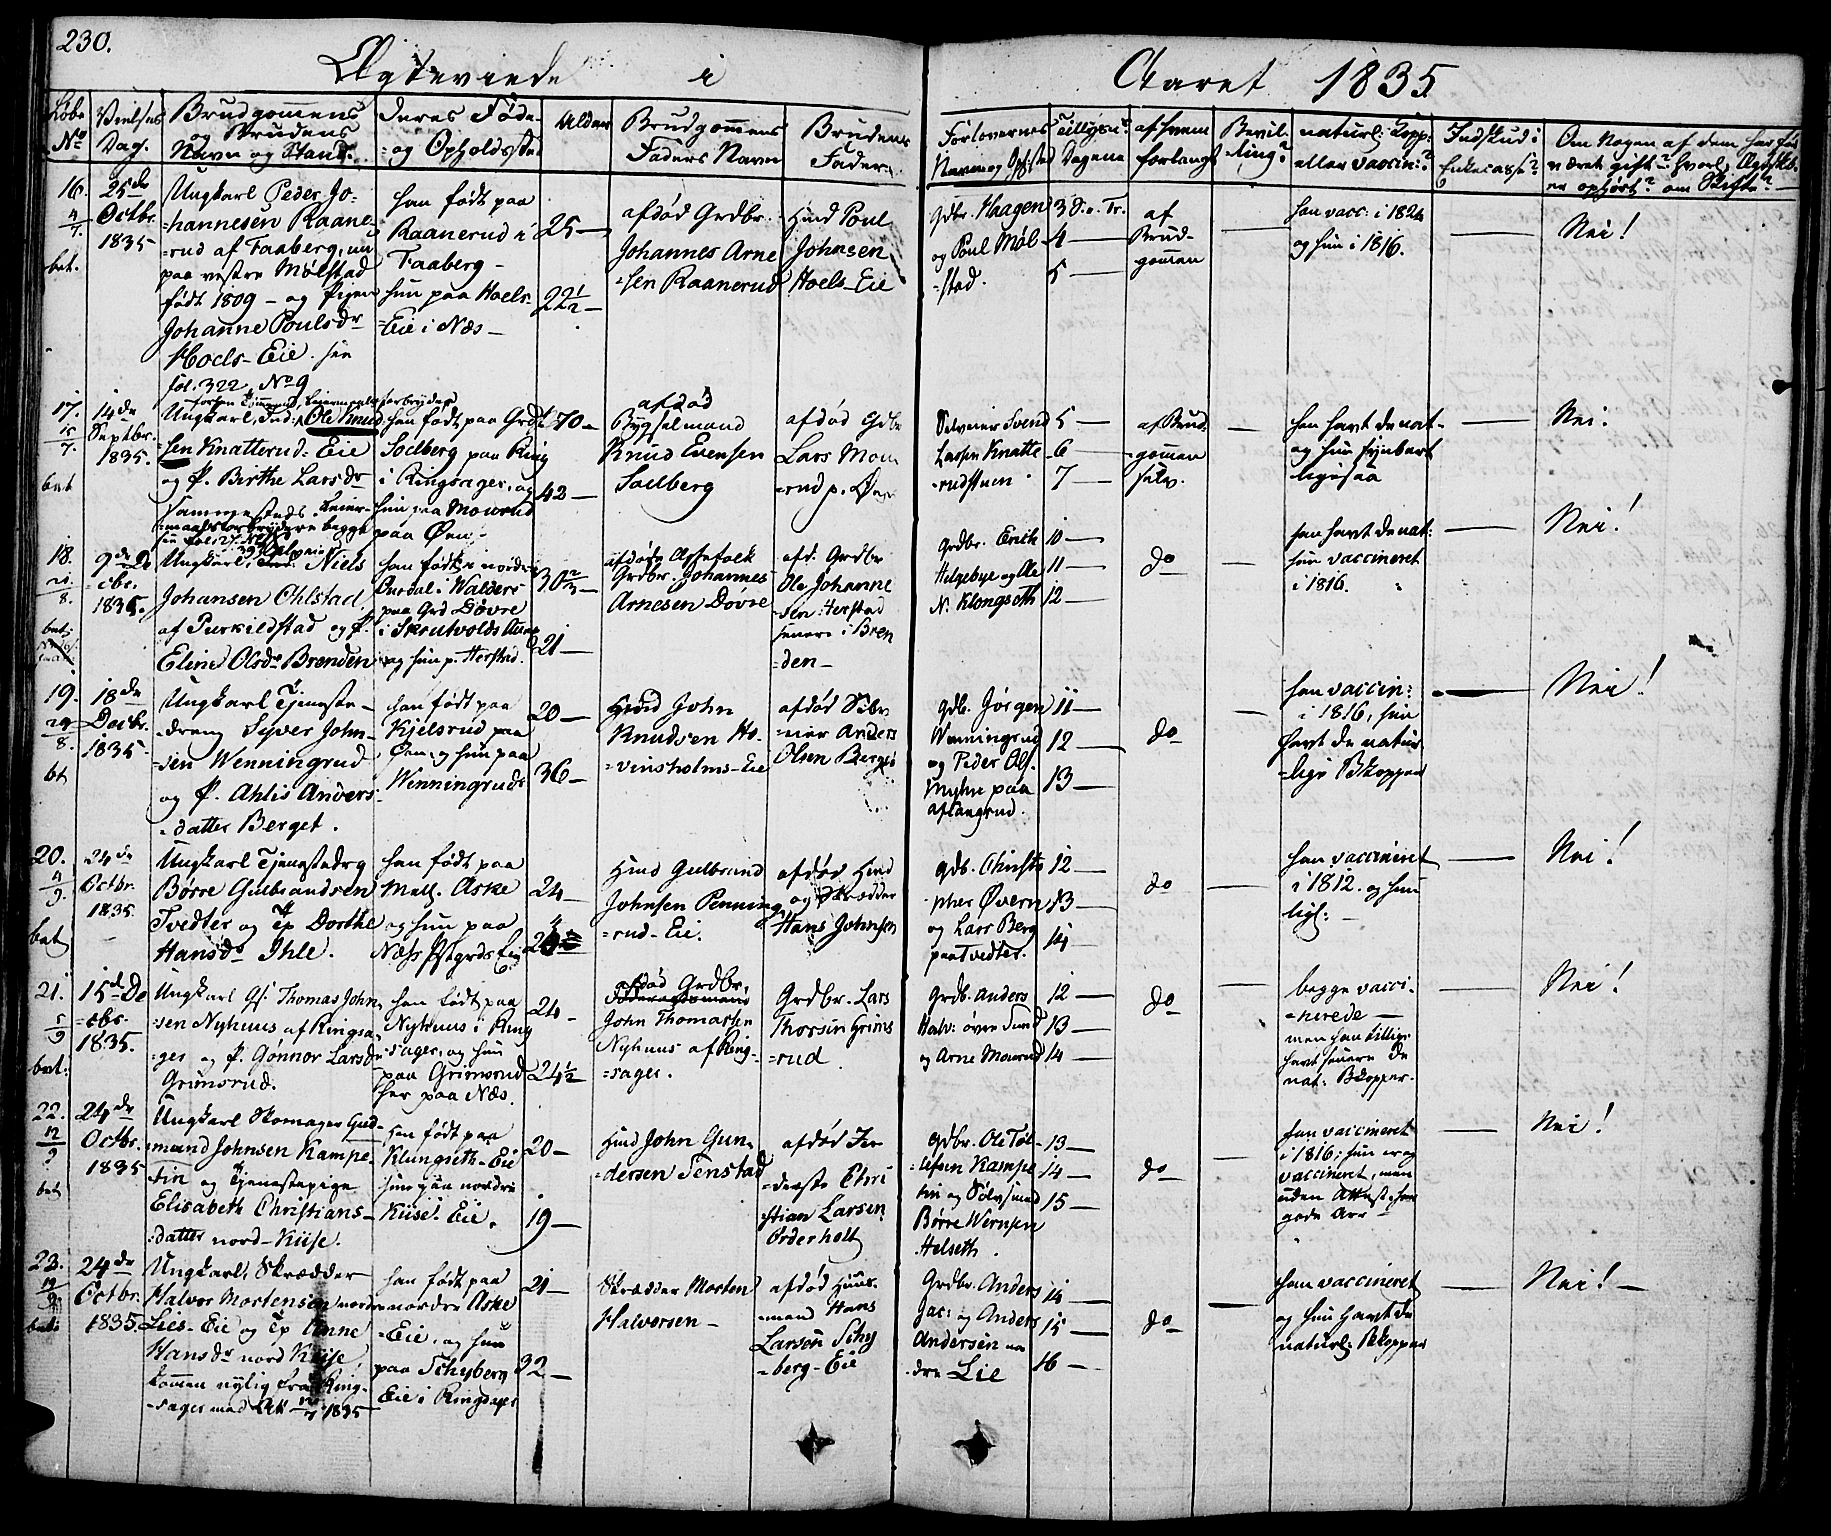 230.
Ægteviede i
Aaret 1835
Løbe
No
Vielses
Dag.
Brudgommens
og Brudens
Navn og Stand.
deres Føde-
=og Opholdssted
Alder
Brudgommens
Faders Navn
Brudens
Fader.
Forlovernes
Navn og Opst
Tillysn:
Dagene
af hvem
forlangt
Bevil-
ling?
naturl: Kopp:
eller vaccin:?
Indskud i
Enkecasse?
Om Nogen af dem har før
været gift? hvorl: Ægtesk:
er ophørt? om Skifte?
16.
4/7.
bet.
25de
Octbr.
1835
Ungkarl Peder Jo-
=hannesen Raane-
=rud af Faaberg, nu
paa vestre Mølstad
født 1809 - og Pigen
Johanne Poulsdr
Hoels-Eie. see
fol. 322, No 9
han født paa
Raanerud i
Faaberg -
hun paa Hoels-
=Eie i Næs -
25 -
22 1/2 -
afdød Grdbr.
Johannes Arne
=sen Raanerud
Hmd Poul
Johnsen
Hoels-Eie
Gdbr. Haagen
og Poul Møl-
=stad.
3 S. e. Tr.
4 -
5 -
af
Brud-
gommen
han vacc: i 1824
og hun i 1816.
Nei!
17.
15/7.
bet
14de
Septbr.
1835.
Ungkarl, Ind: Ole Knud-
sen Knatterud=Eie
og P. Birthe Larsdr
sammesteds. Leier-
=maalsforbrydere begge
han født paa Grd
Solberg paa Ring
i Ringsager, og
hun paa Mourud
paa Øen,
70 -
42 -
afdød
Bygselmand
Knud Evensen
Solberg
afdød Gdbr
Lars Mou
=rud p. Øen
Selveier Svend
Larsen Knatte-
=rudstuen
5 -
6 -
7 -
af Brud-
gommen
selv.
han havt de nat-
og hun synbart
ligesaa
Nei.
18.
21/8.
bet:
9de De
=cbr.
1835.
Ungkarl, Niels
Johansen Ohlstad
af Purkildstad og P.
Eline Olsdr Brenden
han født i nordre
Ourdal i Walders
paa Grd Døvre
i Skrutvolds Annex
og hun p. Herstad.
30 2/3 -
21 -
afdøde Ægtefolk
Grdbr. Johannes
Arnesen Døvre
afd. Grdbr
Ole Johanne
=sen Herstad
senere i Bren
=den -
Grdbr. Erich
Helgebye og Ole
N. Klongseth
10 -
11 -
12 -
do
han havt de nat:
hun vaccineret
i 1816.
Nei!
19.
29/8.
bt
18de
Decbr.
1835
Ungkarl Tjeneste-
=dreng Syver John-
=sen Wenningrud
og P. Ahlis Anders-
=datter Berget.
han født paa
Kjelsrud paa
Øen, og hun paa
Wenningruds
20 -
36 -
Hmd John
Knudsen Ho-
=vinsholms-Eie
afdød Selv-
=eier Anders
Olsen Berget
Gdb. Jørgen
Wenningrud
og Peder Ols.
Myhre paa
aflangrud.
11 -
12 -
13 -
do
han vaccin:
i 1816, hun
havt de natur-
=lige Bkopper
Nei!
20.
4/9.
bet
24de
Octbr.
1835.
Ungkarl Tjenestedrg
Børre Gulbrandsen
Tvedter og Tp Dorthe
Hansdr Ihle.
han født paa
Mell. Aske
og hun paa
Næss Pstgrds Eie
24 -
Hmd Gulbrand
Johnsen Penning
=rud-Eie.
afdød Hmd
og Skrædder
Hans Johnsen
Gdb. Christo
=pher Øvern
og Lars Berg
paa Tvedter.
12 -
13 -
14 -
do
han vaccineret
i 1812. og hun
ligl: -
Nei!
21.
5/9
bet:
15de De
=cbr.
1835.
Ungkarl Gs. Thomas John-
=sen Nyhuus af Ringsa-
=ger og P. Gønnor Larsd
Grimsrud.
han født paa
Nyhuus i Ring
=sager, og hun
paa Grimsrud
her paa Næs.
24 -
24 1/2
afdød Grdbr,
John Thomassen
Nyhuus af Ring-
=sager.
Grdbr. Lars
Thorsen Grims
=rud.
Grdb. Anders
Halv: øvre Sund
og Arne Mourud
12 -
13 -
14 -
do
begge vacci-
=nerede -
men han tillige
havt senere de
nat: Bkopper.
Nei!
22.
12/9
bet
24de
Octbr.
1835
Ungkarl Skomager Gud-
=mund Johnsen Kampe-
=tin og Tjenestepige
Elisabeth Christians-
=datter nord-Kiise.
han født paa
Klungseth-Eie
hun paa nordre
Kiise-Eie.
20 -
19 -
Hmd John Gun-
=dersen Tenstad
afdød In
=derste Chri
=stian Larsen
Orderholt
Gdbr. Ole Tol-
=lefsen Kampe
tin og Sølvsmed
Børre Wernsen
Helseth.
13 -
14 -
15 -
do
han vaccineret
i 1816; hun og
vaccineret, men
uden Attest, har
gode Arr -
Nei!
23.
19/9.
bet:
24de
Octbr.
1835.
Ungkarl, Skrædder
Halvor Mortensen nordre
Lies-Eie og Tp Anne
Hansdr nord Kiise
kommen nylig fra Ring-
=sager med Att 12/7 1835
han født paa
nordre Aske
=Eie, og hun
paa Schyberg
Eie i Ringsager
21 -
32 -
Skrædder Morten
Halvorsen -
afdød Huus-
=mand Hans
Larsen Schy
=berg-Eie
Grdbr. Anders
Jac: og Anders
Andersen no
=dre Lie
14 -
15 -
16 -
do
han vaccineret
og hun havt de
naturl: Bkopper
Nei! -